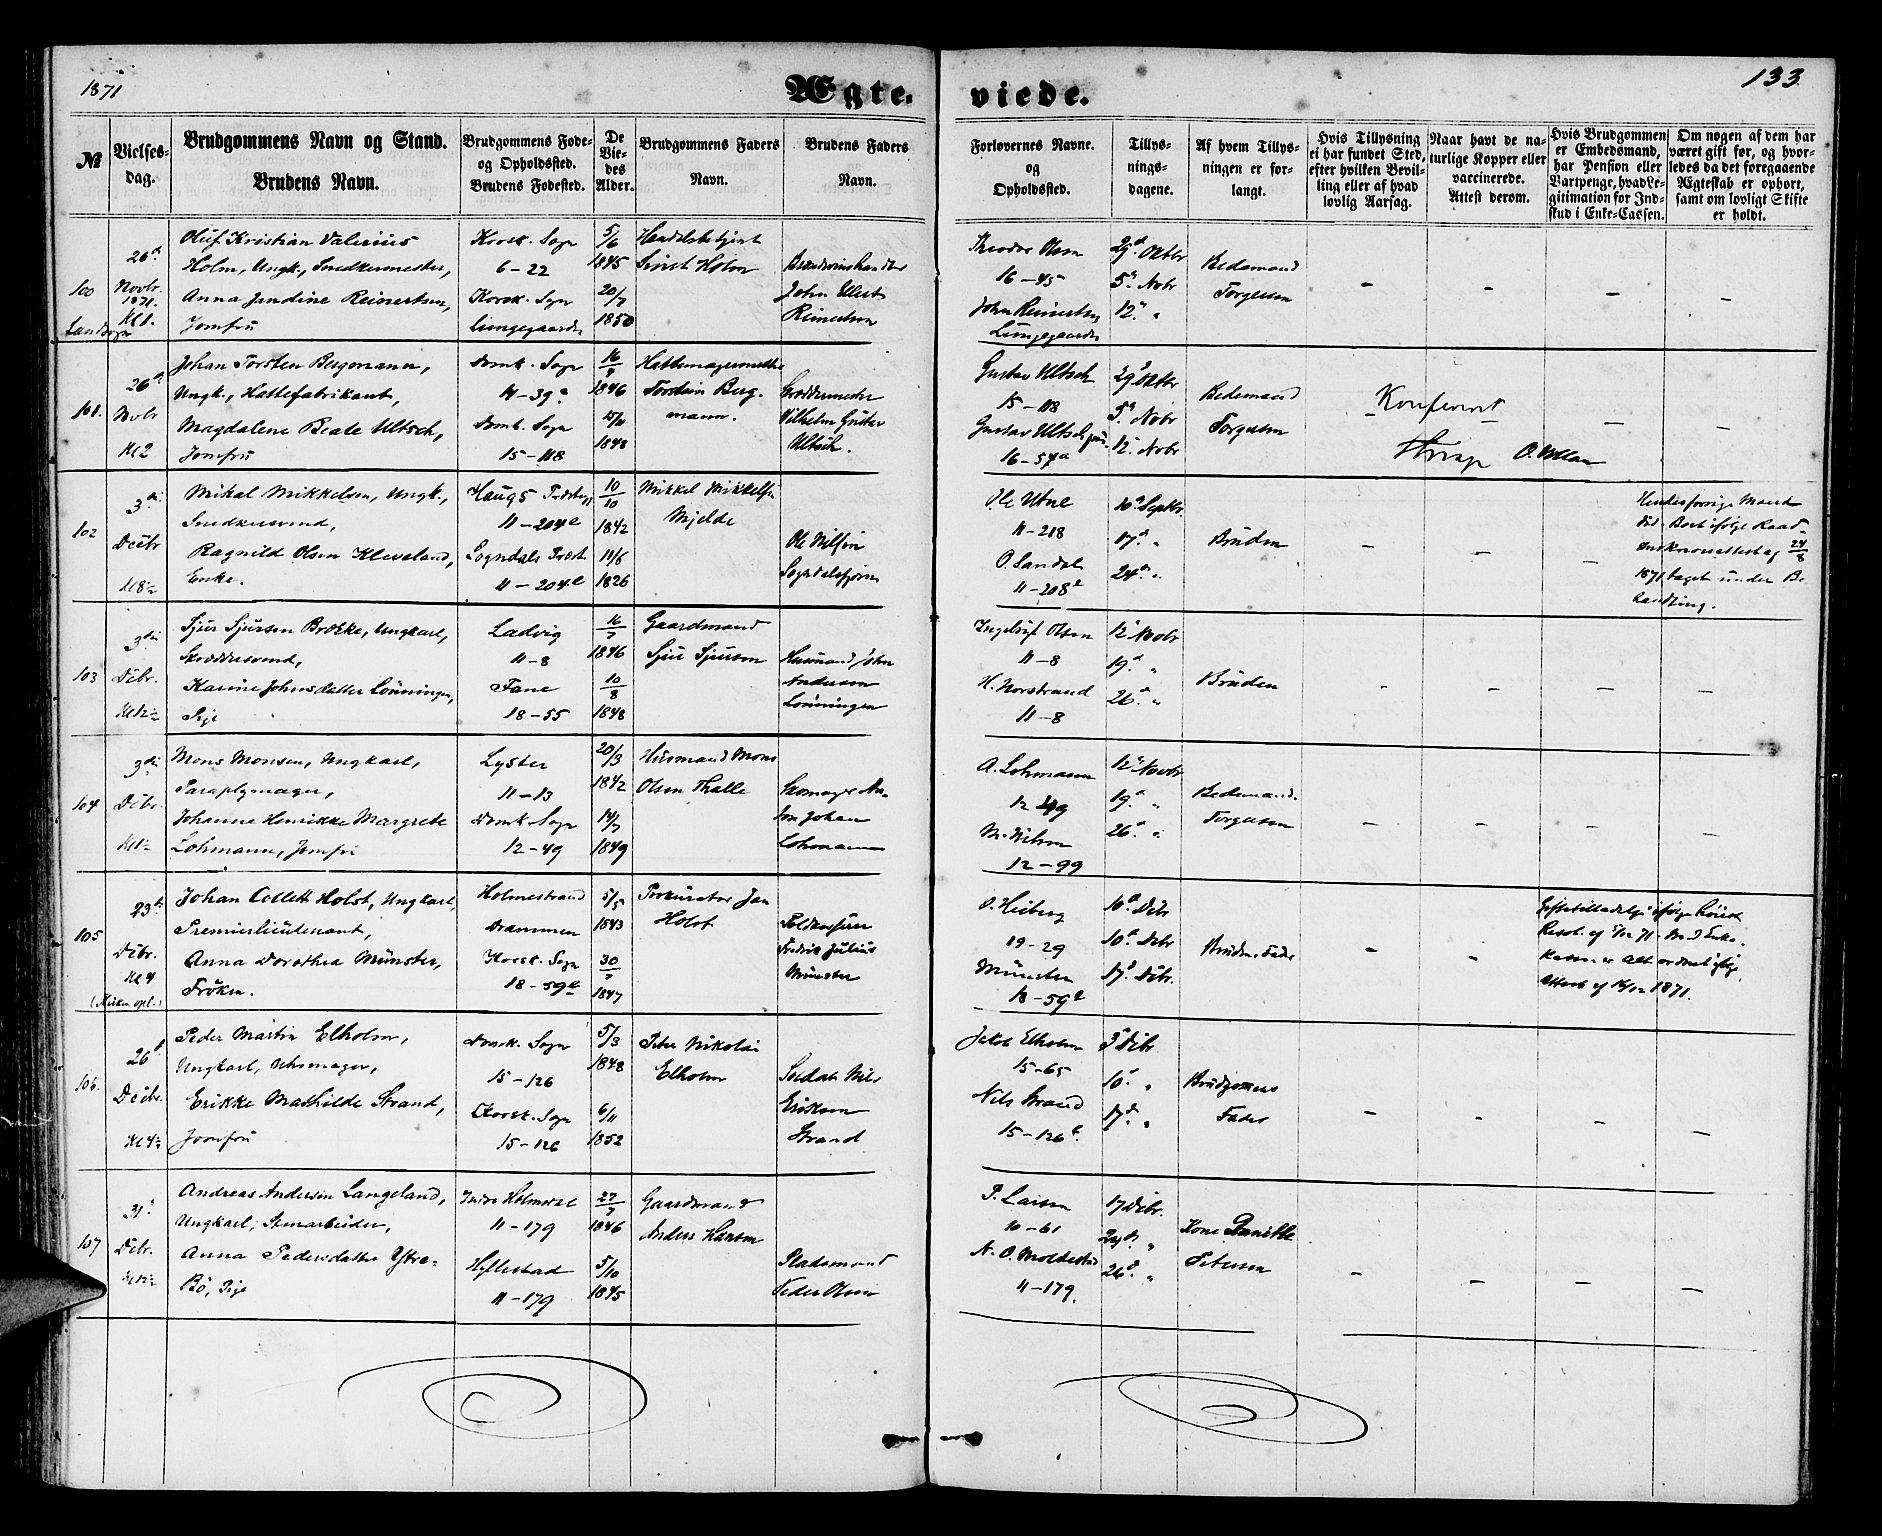 1871
Ægte-
viede.
133.
№
Vielses-
dag.
Brudgommens Navn og Stand.
Brudens Navn.
Brudgommens Føde-
og Opholdssted.
Brudens Fødested.
De
Vie-
des
Alder.
Brudgommens Faders
Navn.
Brudens Faders
Navn.
Forlovernes Navne.
og
Opholdssted.
Tillys-
nings-
dagene.
Af hvem Tillys-
ningen er for-
langt.
Hvis Tillysning
ei har fundet Sted,
efter hvilken Bevil-
ling eller af hvad
lovlig Aarsag.
Naar havt de na-
turlige Kopper eller
vaccinerede.
Attest derom.
Hvis Brudgommen
er Embedsmand,
har Pension eller
Vartpenge, hvad Le-
gitimation for Ind-
skud i Enke-Cassen.
Om nogen af dem har
været gift før, og hvor-
ledes da det foregaaende
Ægteskab er ophørt,
samt om lovligt Skifte
er holdt.
100
Landsogn
26de
Novbr.
1871.
Kl 1.
Oluf Kristian Valerius
Holm, Ungk., Snedkermester,
Anna Jendine Reinertsen,
Jomfru
Korsk. Sogn
6-22
Korsk. Sogn
Lungegaarden
5/6
1845
20/7
1850
Handelsbetjent
Holm
Brændevinshandler
John
Reinertsen
Theodor Olsen
16-45
John Reinertsen
Lungegaarden
29d Oktbr
5d Nobr
12d "
Bedemand
Torgersen
101.
26de
Nobr
Kl 2
Johan Torsten Bergmann,
Ungk., Hattefabrikant,
Magdalene Beate Ultsch,
Jomfru
Domk. Sogn
4-39a
Domk. Sogn
15-118
16/7
1846
1848
Hattemagermester
Torstein Berg-
mann.
Skræddermester
Vilhelm Gustav
Ultsch.
Gustav Ultsch
15-118
Gustav Ultsch jun.
16-57a
29d Oktbr
5d Nobr
12d Nobr
Bedemand
Torgersen
Konfereret
102
3die
Decbr
Kl 8½
Mikal Mikkelsen, Ungk.,
Snedkersvend,
Ragnild Olsen Kleveland,
Enke.
Haugs Præsteg.
11-204e
Sogndals Præst.
11-204e
10/10
1842
11/6
1826
Mikkel Mikkelsen
Mjelde
Ole Nilsen
Sogndalsfjøren
Ole Utne
11-218
O. Sandal
11-208e
10d Septbr.
17d "
24d "
Bruden
Hendes forrige Mands
Død. Bo er ifølge Raad-
24/8
1871 taget under Be-
handling.
103
3die
Decbr.
Kl 12½
Sjur Sjursen Brekke, Ungkarl,
Skræddersvend,
Karine Johnsdatter Lønningen,
Pige
Ladvig
11-8
Fane
18-55
16/7
1846
10/8
1848
Gaardmand
Sjur Sjursen
Husmand John
Andersen
Lønningen
Ingebrigt Olsen
11-8
H. Norstrand
11-8
12d Novbr
19d "
26d "
Bruden
104
3die
Decbr.
Kl 1½
Mons Monsen, Ungkarl,
Paraplymager,
Johanne Henrikke Margrete
Lohmann, Jomfru
Lyster
11-13
Domk. Sogn
12-49
20/3
1842
14/7
1849
Husmand Mons
Olsen Thalle
Skomager An-
ton Johan
Lohmann
A. Lohmann
12 49
M. Nilsen
12-99
12d Novbr
19d "
26d "
Bedemand
Torgersen
105
23d
Decbr.
Kl 4
(Kirken opl.)
Johan Collett Holst, Ungkarl,
Premierlieutenant,
Anna Dorothea Münster,
Frøken.
Holmestrand
Drammen
Korsk. Sogn
18-59d
5/5
1843
30/7
1847
Prokurator Jan
Holst
Toldkasserer
Fredrik Julius
Münster
O. Heiberg
19-29
Münster
18-59d
10d Debr
10d Debr
17d Debr.
Brudens Fader
Giftetilladelse ifølge høieste
Resol. af 5/12 71. M. I Enke-
Kassen er Alt ordnet ifølge
Attest af 16/12 1871.
106.
26d
Decbr.
Kl 4½
Peder Martin Elholm,
Ungkarl, Uhrmager,
Erikke Mathilde Strand,
Jomfru
Domk. Sogn
15-126
Korsk. Sogn
15-126
5/3
1848
6/11
1852
Peter Nikolai
Elholm
Soldat Nils
Eriksen
Strand
Jakob Elholm
15-65
Nils Strand
15-126e.
3d Debr
10d "
17d "
Brudgommens
Fader
107
31d
Debr.
Kl 12½
Andreas Andersen Langeland,
Ungkarl, Stenarbeider,
Anna Pedersdatter Ytre-
Bø, Pige
Indre Holmedal
11-179
Hyllestad
11-179
27/7
1846
5/10
1845
Gaardmand
Anders Hansen
Pladsmand
Peder Olsen
P. Larsen
10-61
N. O. Moldestad
11-179.
17 Debr.
24d "
26d "
Kone Danielle
Petersen